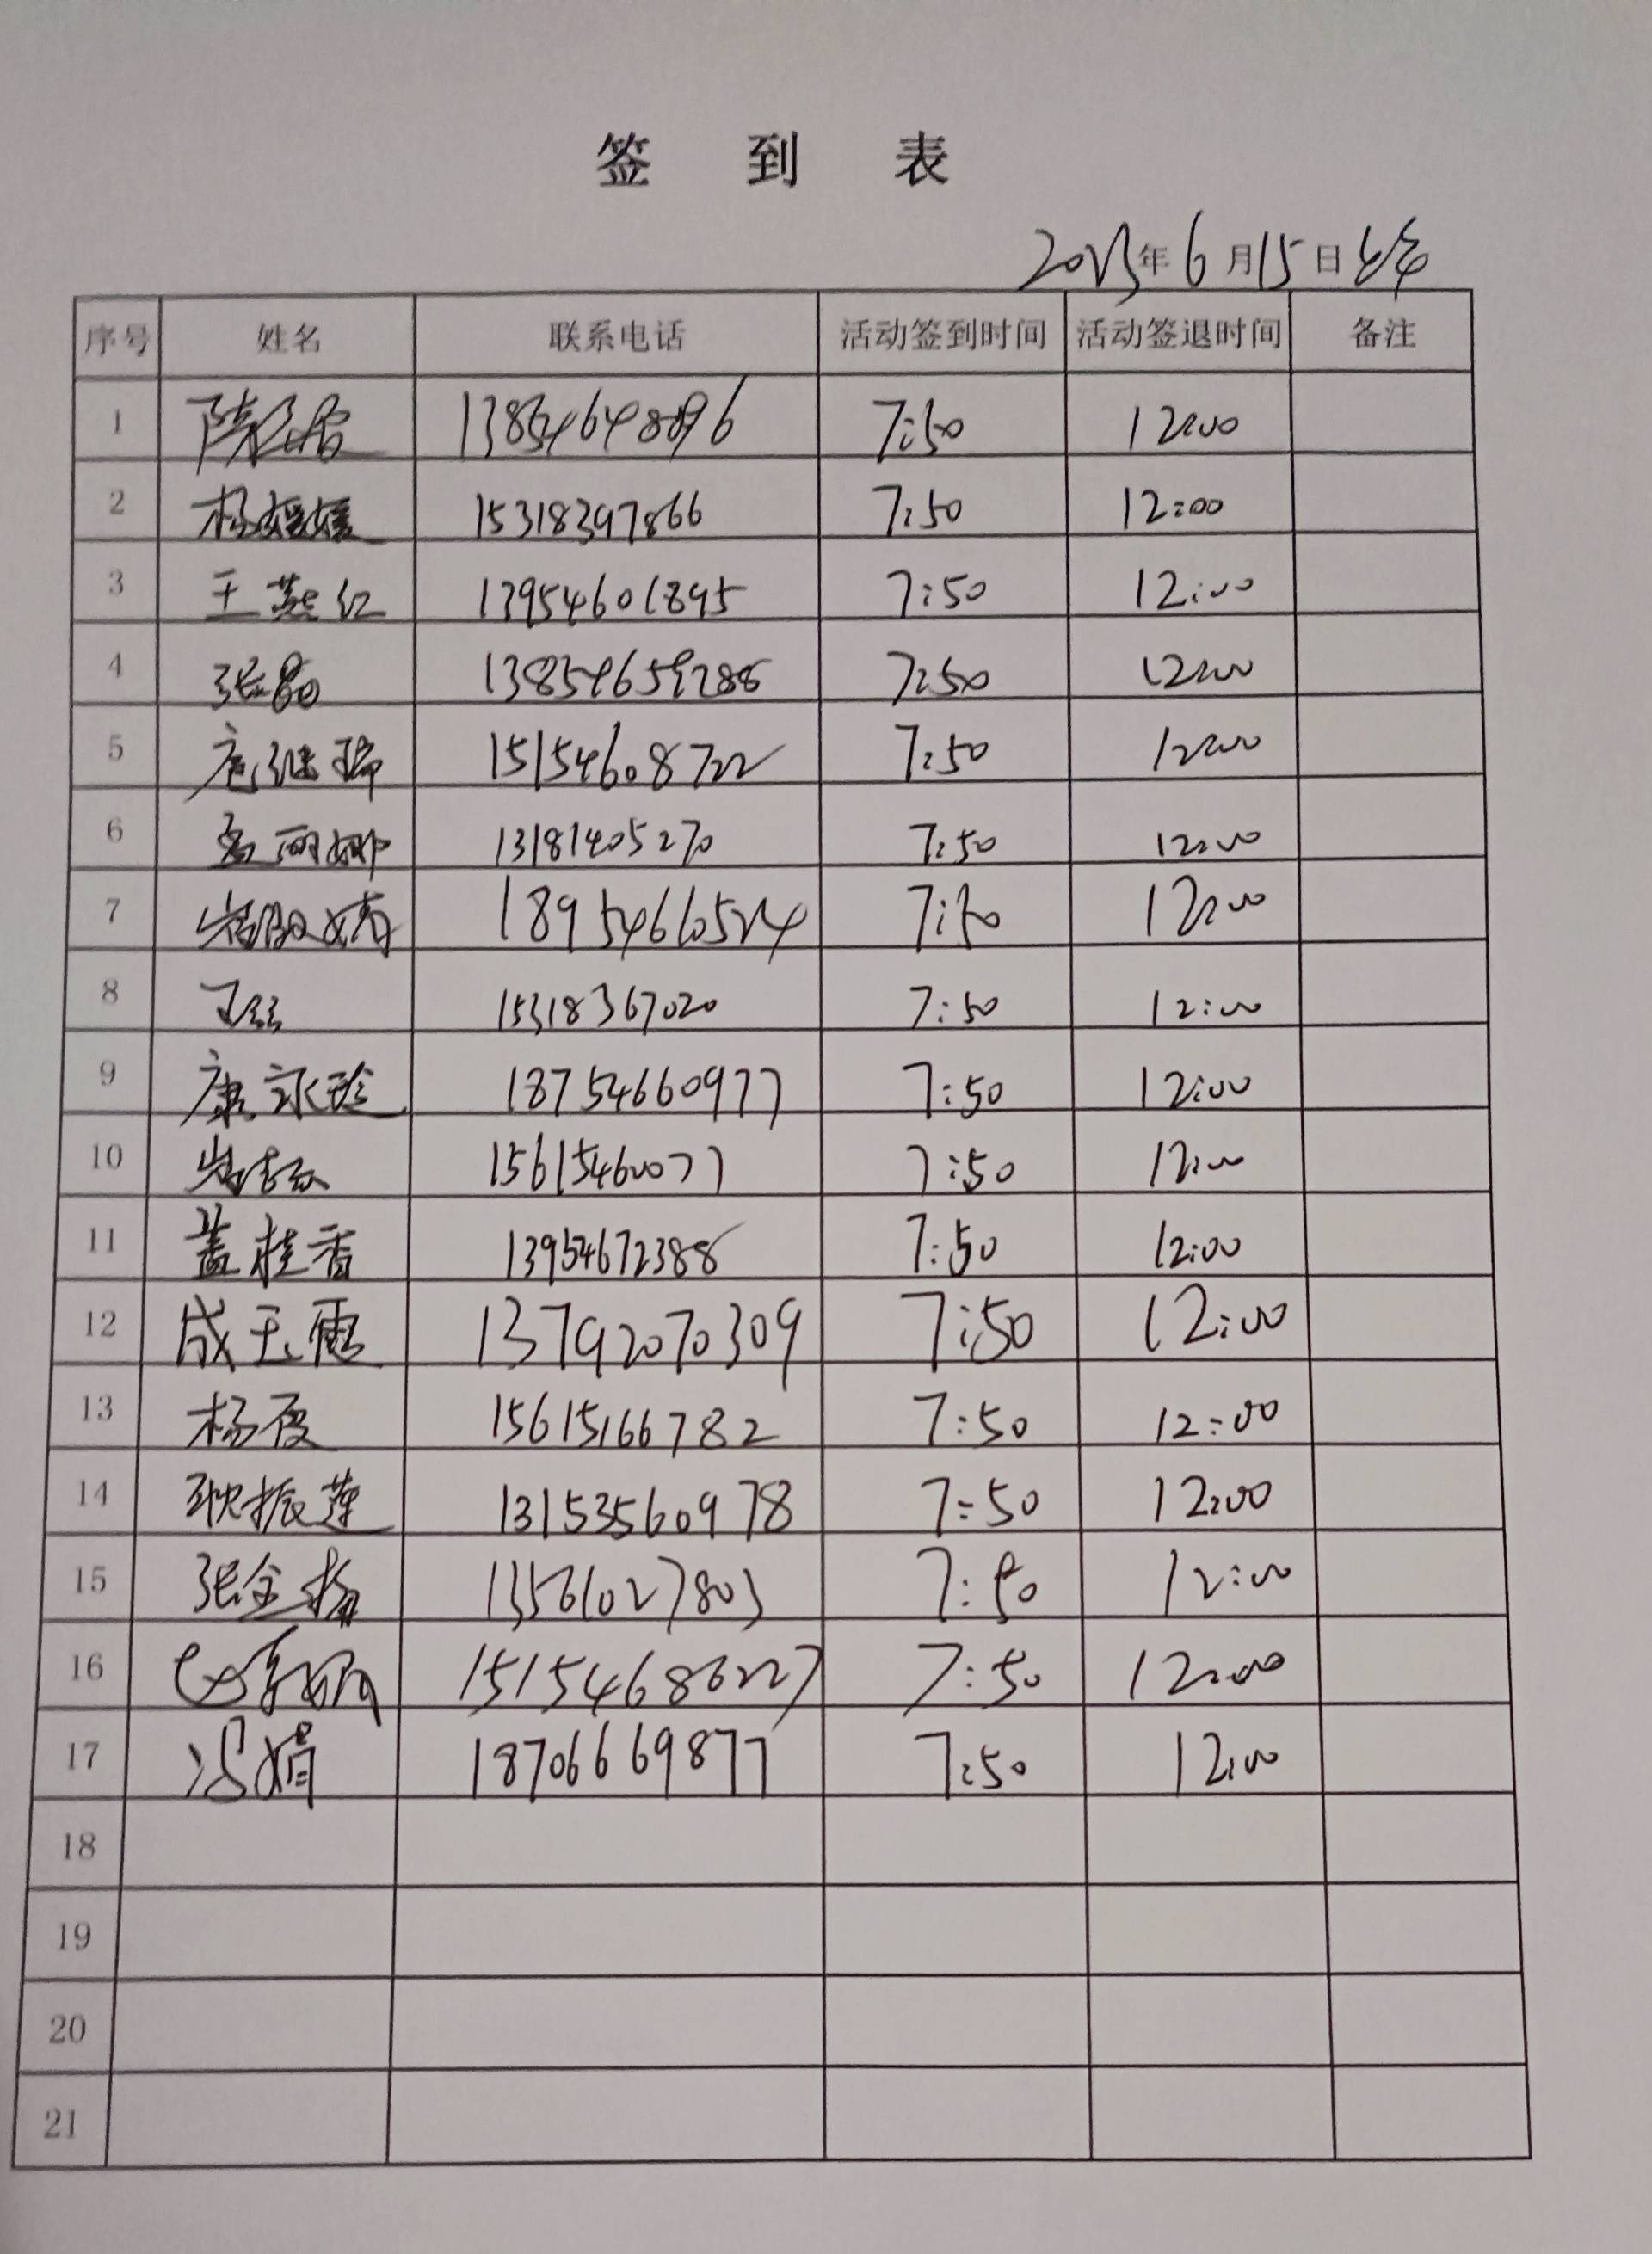 签 到 表
2023年6月15日
序号 姓名 联系电话 活动签到时间 活动签退时间 备注
1 7:50 12:00
2 杨媛媛 15318397866 7:50 12:00
3 王燕红 13954601895 7:50 12:00
4 张磊 13854659288 7:50 12:00
5 15154608722 7:50 12:00
6 高丽娜 13181405270 7:50 12:00
7 18954660524 7:50 12:00
8 15318367020 7:50 12:00
9 康永珍 18754660977 7:50 12:00
10 15615460077 7:50 12:00
11 盖桂香 13954672388 7:50 12:00
12 成玉霞 13792070309 7:50 12:00
13 杨霞 15615166782 7:50 12:00
14 耿振莲 13153560978 7:50 12:00
15 张金梅 13561027803 7:50 12:00
16 15154686227 7:50 12:00
17 冯婧 18706669877 7:50 12:00
18
19
20
21